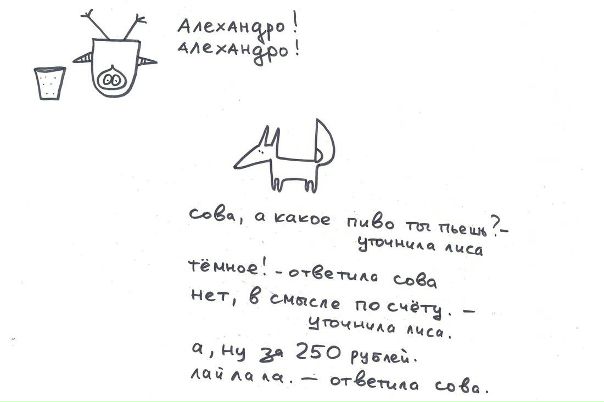 Алехандро!
Алехандро!
сова, а какое пиво ты пьешь? -
уточнила лиса
тёмное! - ответила сова
нет, в смысле по счёту. -
уточнила лиса.
а, ну за 250 рублей.
лай ла ла. - ответила сова.